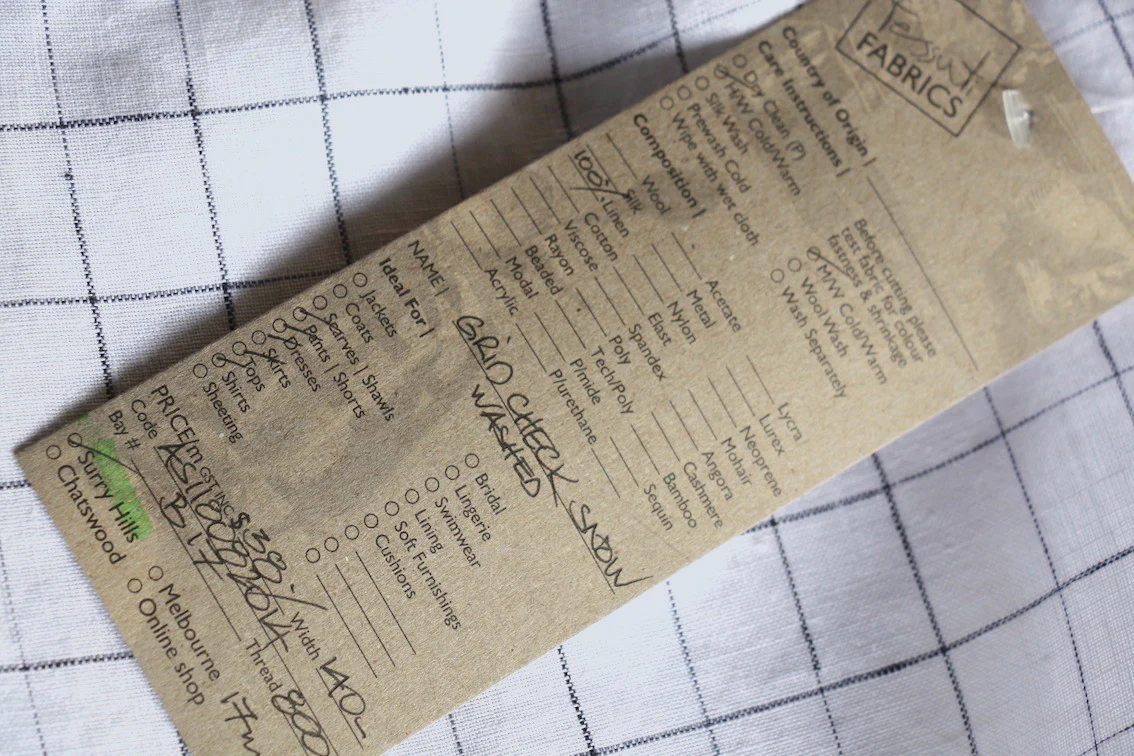 Tessuti
FABRICS
Country of Origin |
Care Instructions |
Dry Clean (P)
H/W Cold/Warm
Silk Wash
Prewash Cold
Wipe with wet cloth
Before cutting please
test fabric for colour
fastness & shrinkage
M/W Cold/Warm
Wool Wash
Wash Separately
Composition |
Wool
Silk
100% Linen
Cotton
Viscose
Rayon
Beaded
Modal
Acrylic
Acetate
Metal
Nylon
Elast
Spandex
Poly
Tech/Poly
P/mide
P/urethane
Lycra
Lurex
Neoprene
Mohair
Angora
Cashmere
Bamboo
Sequin
NAME | GRID CHECK SNOW
WASHED
Ideal For |
Jackets
Coats
Scarves | Shawls
Pants | Shorts
Dresses
Skirts
Tops
Shirts
Sheeting
Bridal
Lingerie
Swimwear
Lining
Soft Furnishings
Cushions
PRICE/m GST INC $39.- Width 140-
Code
Thread 800
Bay # B17
Surry Hills
Chatswood
Melbourne
Online shop
17m